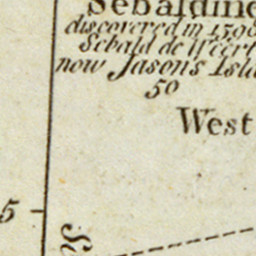 Sebaldine
discovered in 159
Sebald de Weert
now Jason's Isla
50
West
5
S